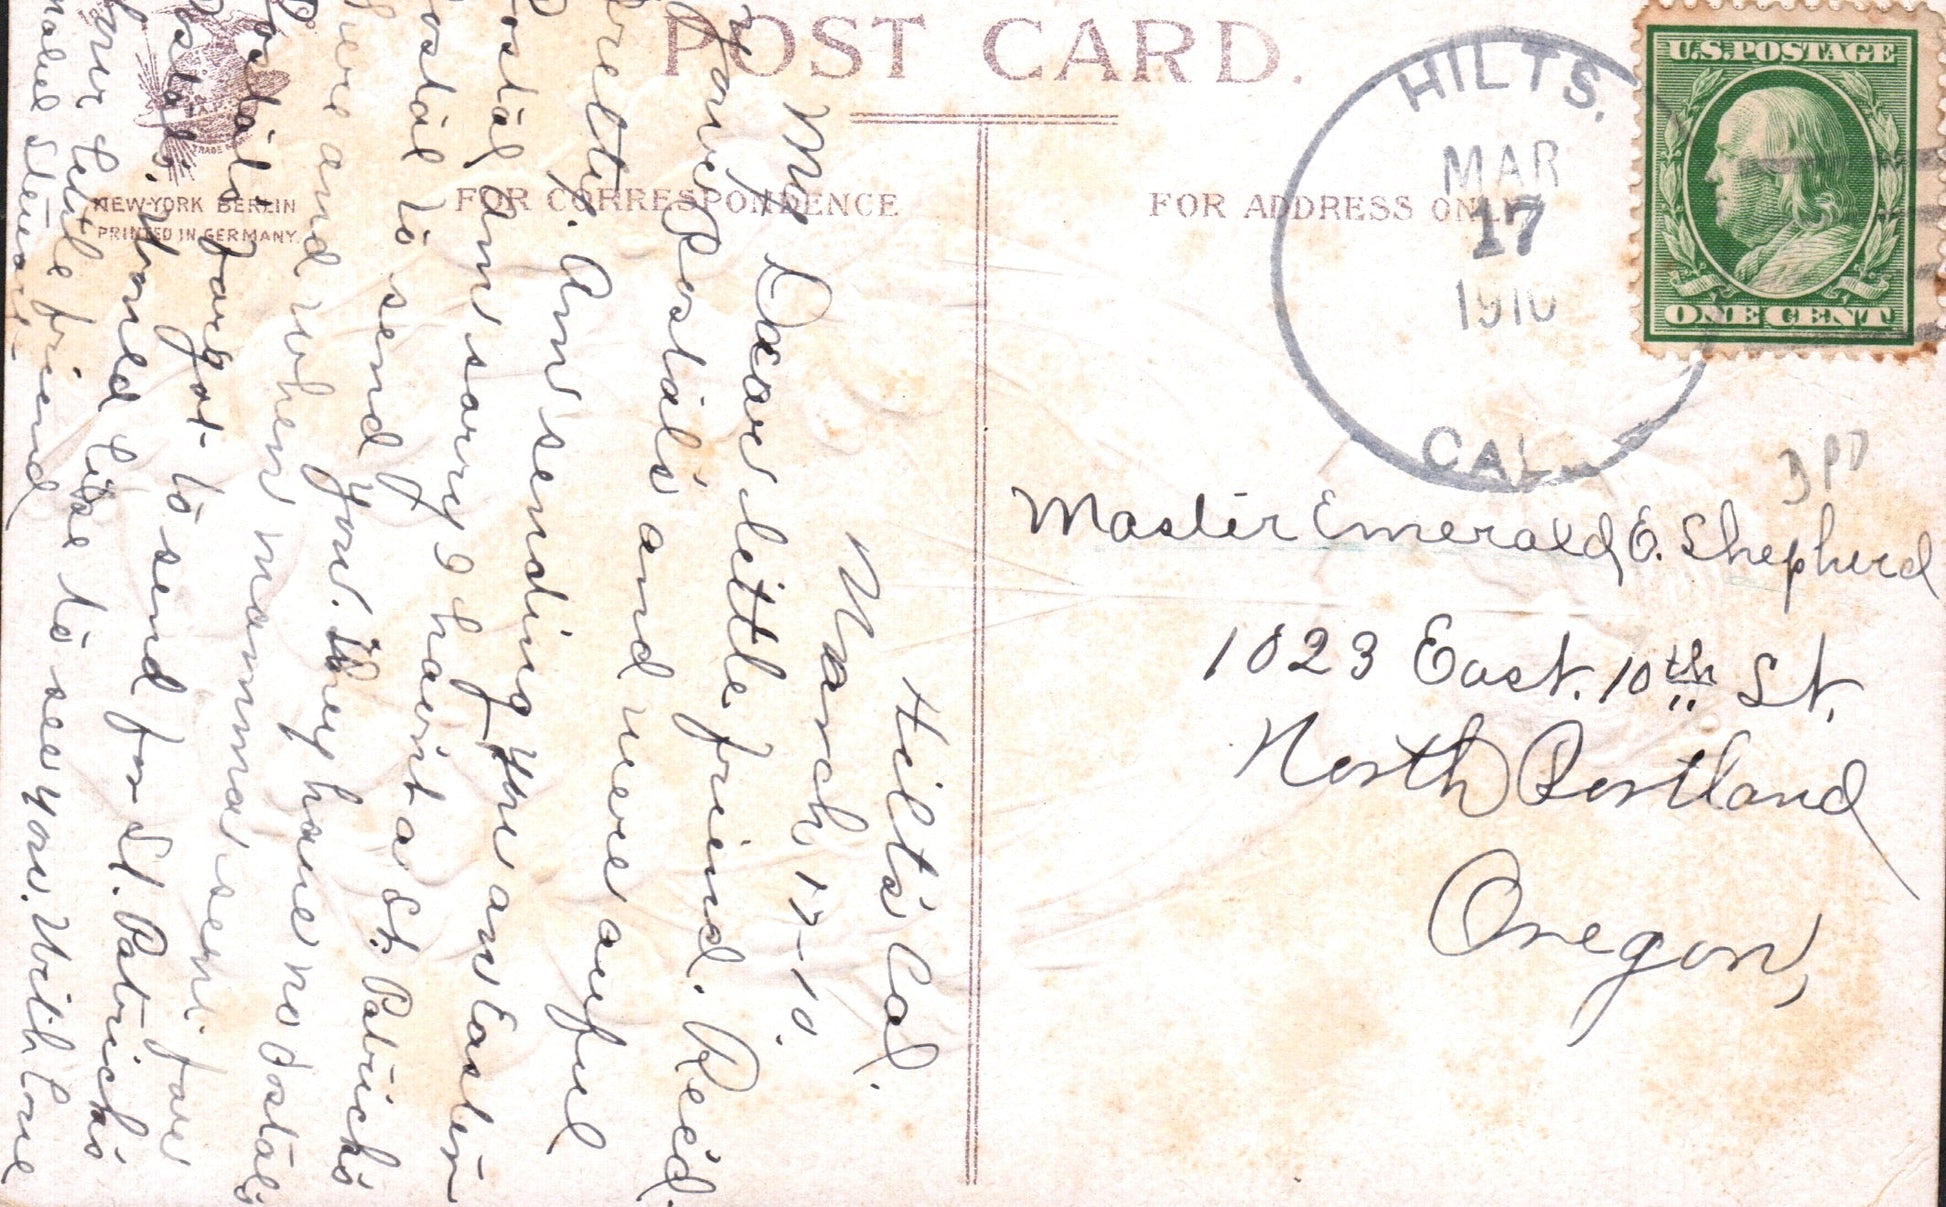 POST CARD.
FOR CORRESPONDENCE
FOR ADDRESS ONLY
NEW-YORK BERLIN
PRINTED IN GERMANY.
TRADE
U.S. POSTAGE
ONE CENT
HILTS.
MAR
17
1910
CAL.
3 PD
Master Emerald E. Shepherd
1023 East. 10th St.
North Portland
Oregon,
Hilt's Cal.
March, 17-10.
My Dear little friend. Rec'd.
your Postal's and were awful
Pretty. Am sending you an Easter
Postal, am sorry I havent a St. Patrick's
Postal to send you. They have no Postal's
here and when mamma sent for
Postal's forgot to send for St. Patrick's
Postals. Would like to see you. With love
Your little friend
Mabel Stewart